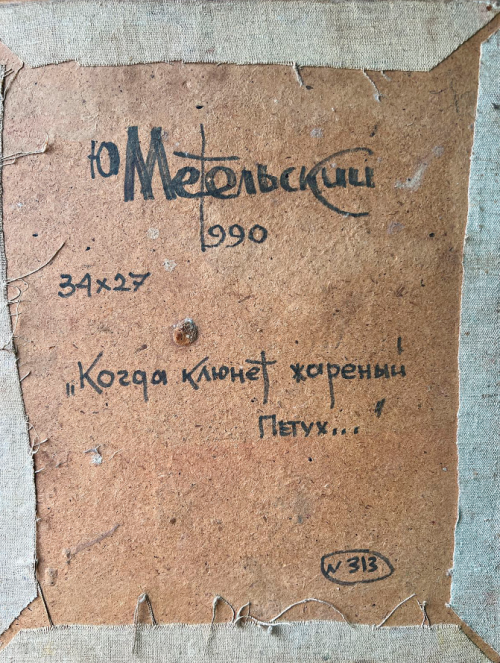 Ю Метельский
1990
34х27
„Когда клюнет жареный
Петух..."
N 313